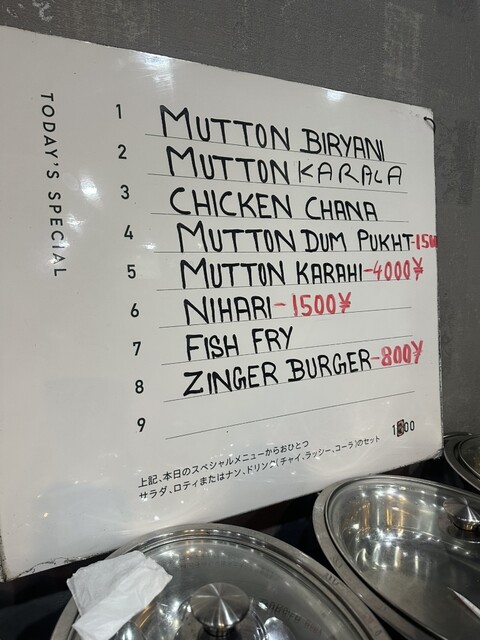 TODAY'S SPECIAL
1 MUTTON BIRYANI
2 MUTTON KARALA
3 CHICKEN CHANA
4 MUTTON DUM PUKHT-1500
5 MUTTON KARAHI-4000¥
6 NIHARI-1500¥
7 FISH FRY
8 ZINGER BURGER-800¥
9
上記、本日のスペシャルメニューからおひとつ
サラダ、ロティまたはナン、ドリンク(チャイ、ラッシー、コーラ)のセット